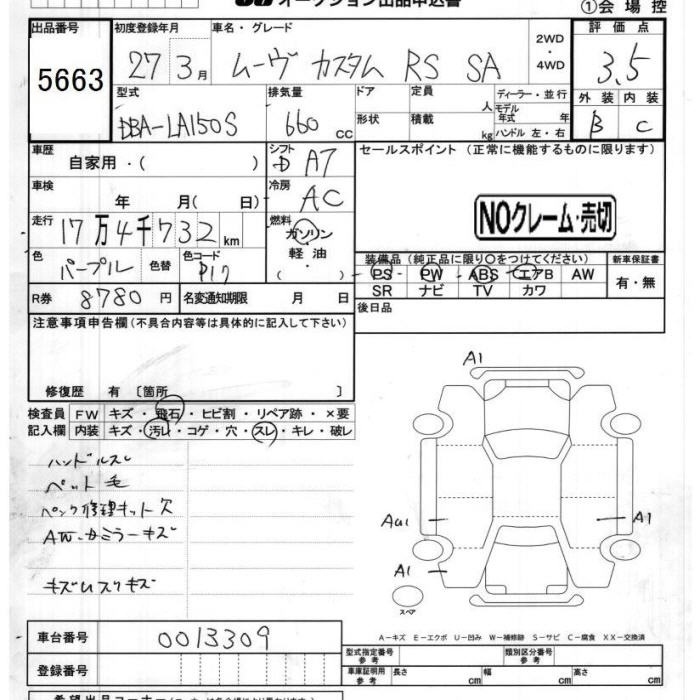 オークション出品申込書
①会場控
出品番号 5663
初度登録年月 27 3月
車名・グレード ムーヴ カスタム RS SA
2WD・4WD
評価点 3.5
外装 B 内装 C
型式 DBA-LA150S
排気量 660 CC
ドア 形状
定員 人
積載 kg
ディーラー・並行
モデル年式 年
ハンドル 左・右
車歴 自家用・( )
シフト D A7
セールスポイント (正常に機能するものに限ります)
車検 年 月( 日)
冷房 AC
NOクレーム・売切
走行 17万4千732km
燃料 ガソリン 軽油・( )
色 パープル 色替
色コード P17
装備品(純正品に限り〇をつけてください) 新車保証書
PS PW ABS エアB AW 有・無
SR ナビ TV カワ
R券 8780円
名変通知期限 月 日
後日品
注意事項申告欄(不具合内容等は具体的に記入して下さい)
修復歴 有 〔箇所 〕
検査員記入欄
FW キズ・飛石・ヒビ割・リペア跡・×要
内装 キズ・汚レ・コゲ・穴・スレ・キレ・破レ
ハンドルスレ
ペット毛
パンク修理キット欠
AW・カミラーキズ
キズUスリキズ
A1
AU1
A1
A1
スペア
A-キズ E-エクボ U-凹み W-補修跡 S-サビ C-腐食 XX-交換済
車台番号 0013309
登録番号
型式指定番号 参考
類別区分番号 参考
車庫証明用 参考 長さ cm 幅 cm 高さ cm
希望出品コーナー